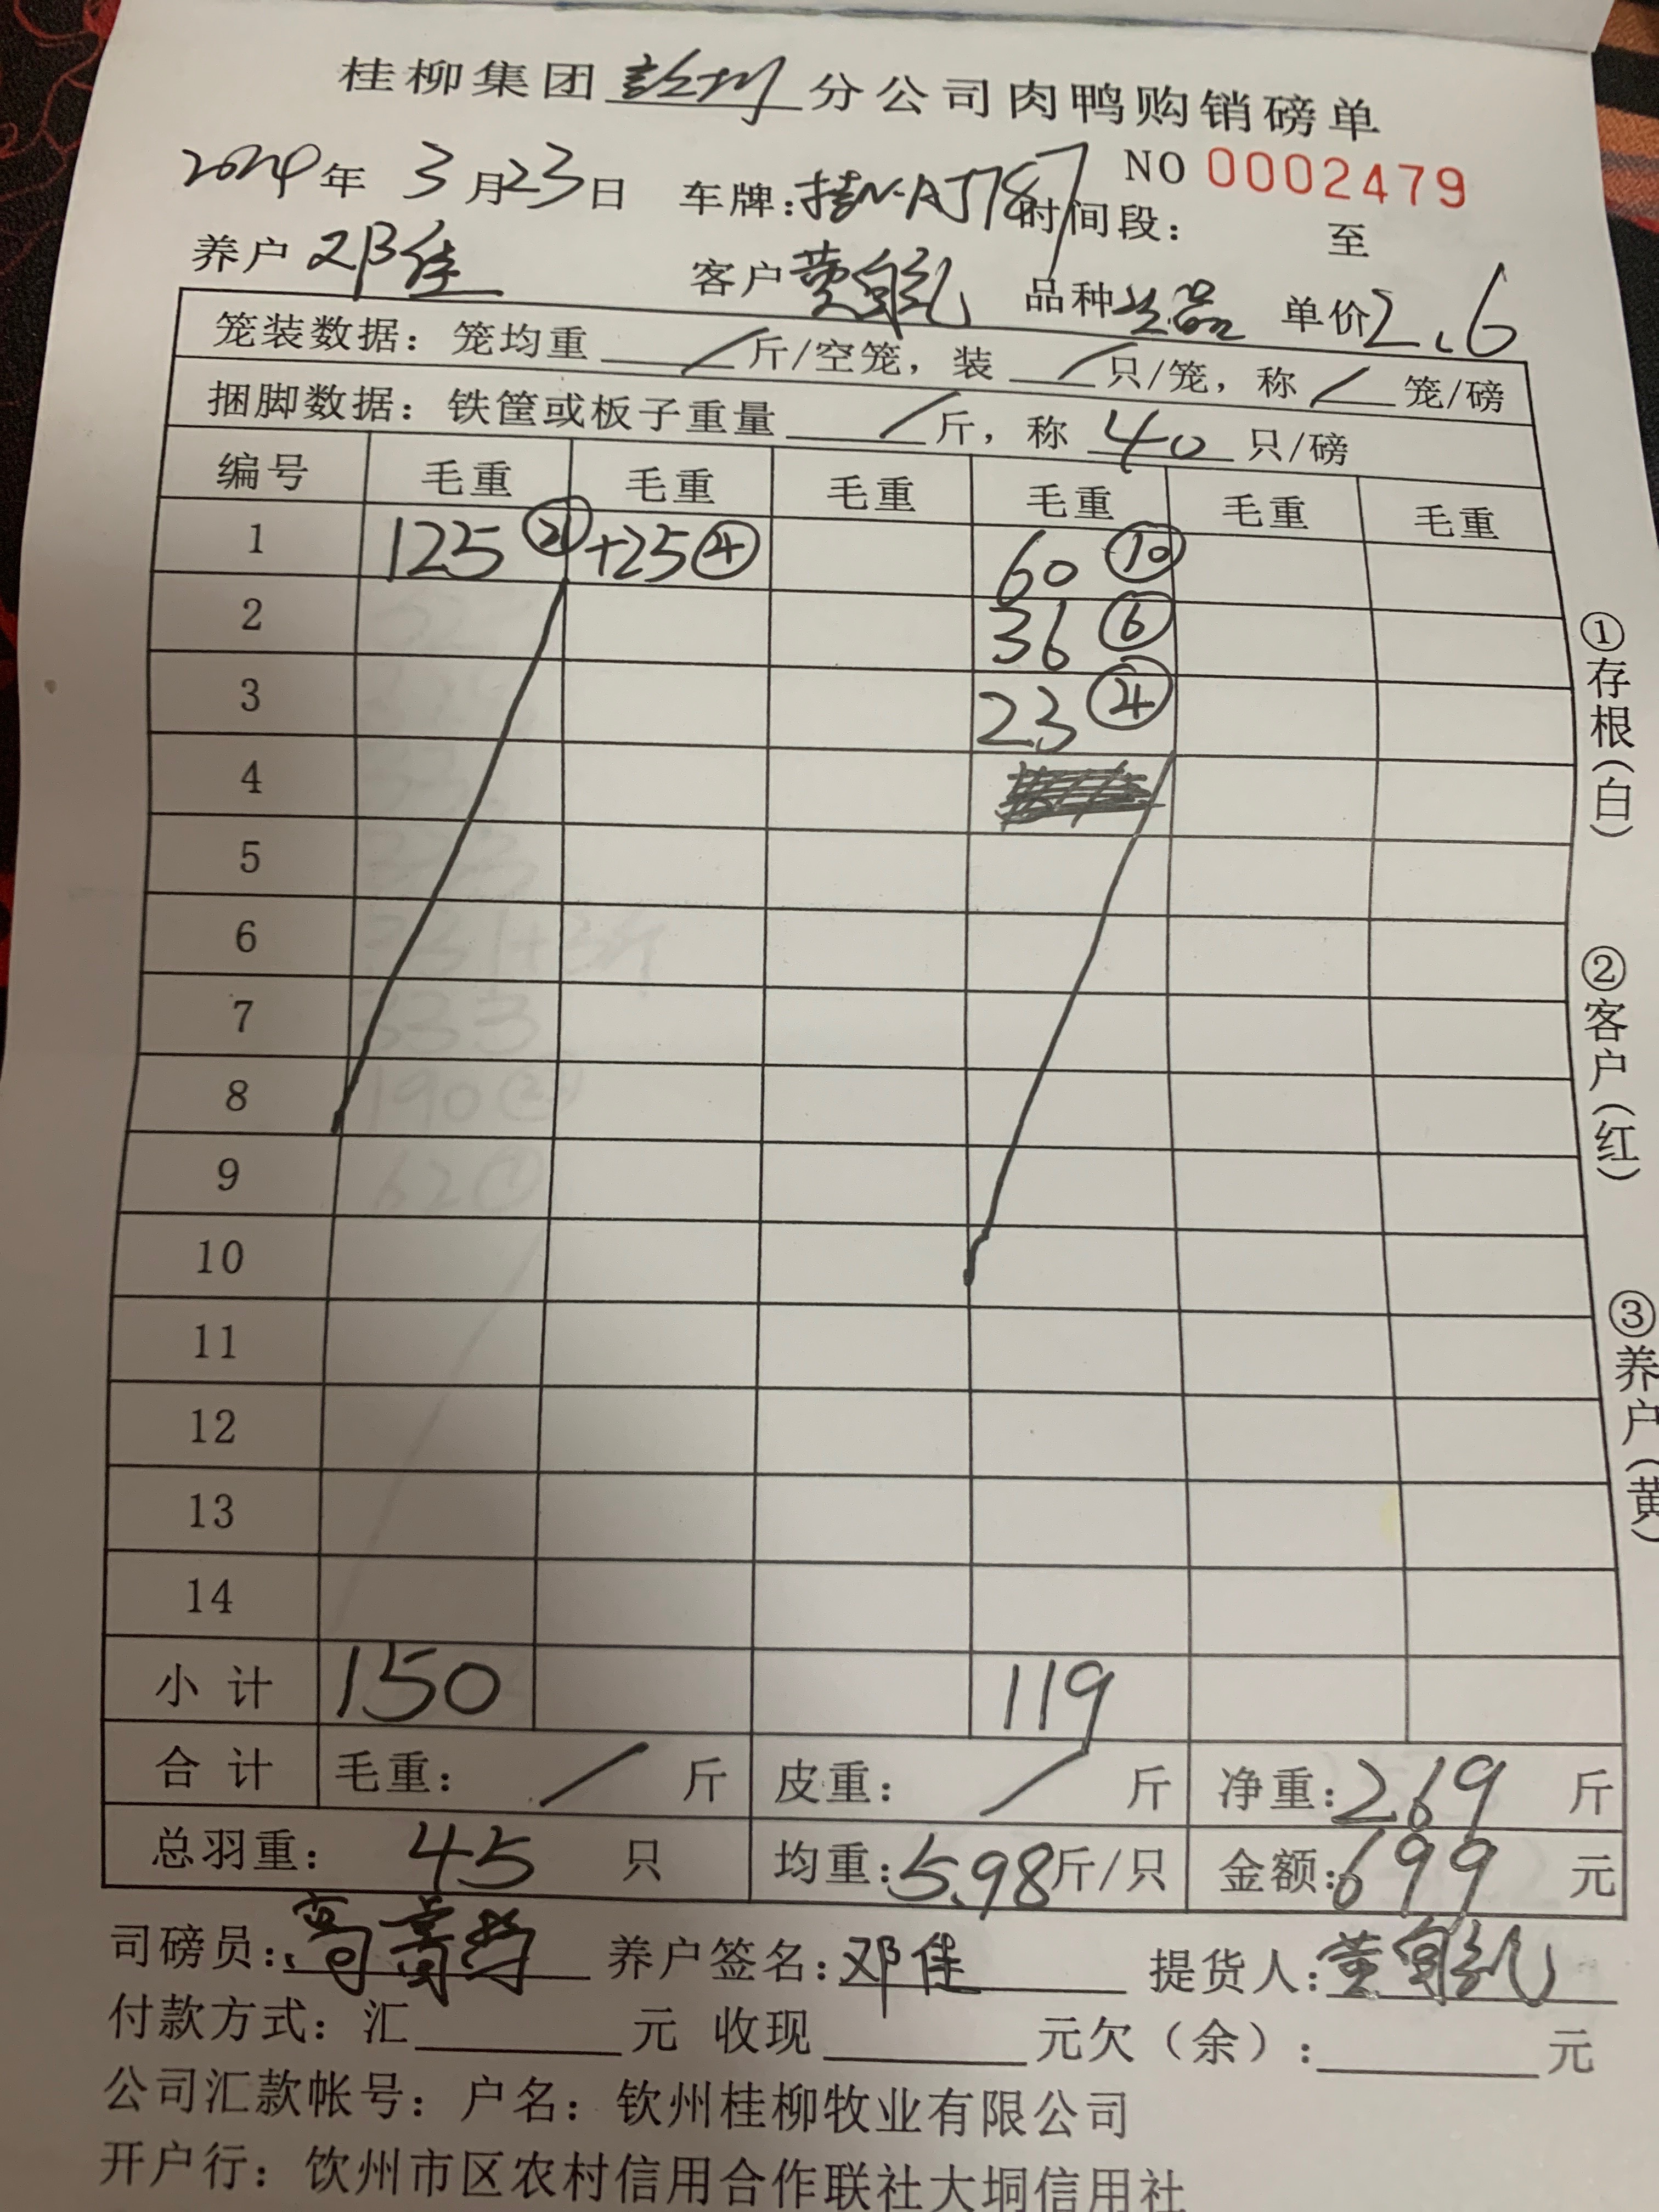 桂柳集团 分公司肉鸭购销磅单
NO 0002479
2024年 3月23日 车牌: 时间段: 至
养户 邓佳 客户 品种 单价2.6
笼装数据：笼均重 / 斤/空笼，装 / 只/笼，称 / 笼/磅
捆脚数据：铁筐或板子重量 / 斤，称 40 只/磅
编号 毛重 毛重 毛重 毛重 毛重 毛重
1 125 ㉑ +25 ④ 60 ⑩
2 36 ⑥
3 23 ④
4
5
6
7
8
9
10
11
12
13
14
小 计 150 119
合 计 毛重: / 斤 皮重: / 斤 净重:269 斤
总羽重: 45 只 均重:5.98斤/只 金额:699 元
司磅员: 养户签名:邓佳 提货人:
付款方式：汇 元 收现 元欠（余）: 元
公司汇款帐号：户名：钦州桂柳牧业有限公司
开户行：饮州市区农村信用合作联社大垌信用社
①存根（白）
②客户（红）
③养户（黄）